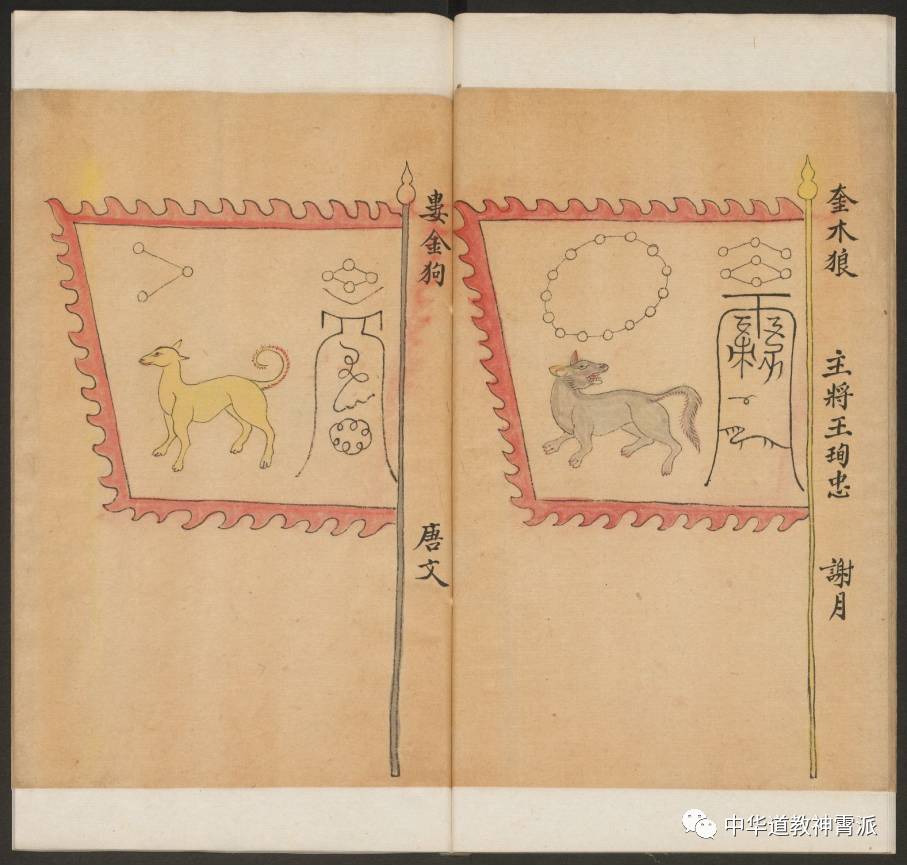 奎木狼
主將王珣忠
謝月
婁金狗
唐文
中华道教神霄派